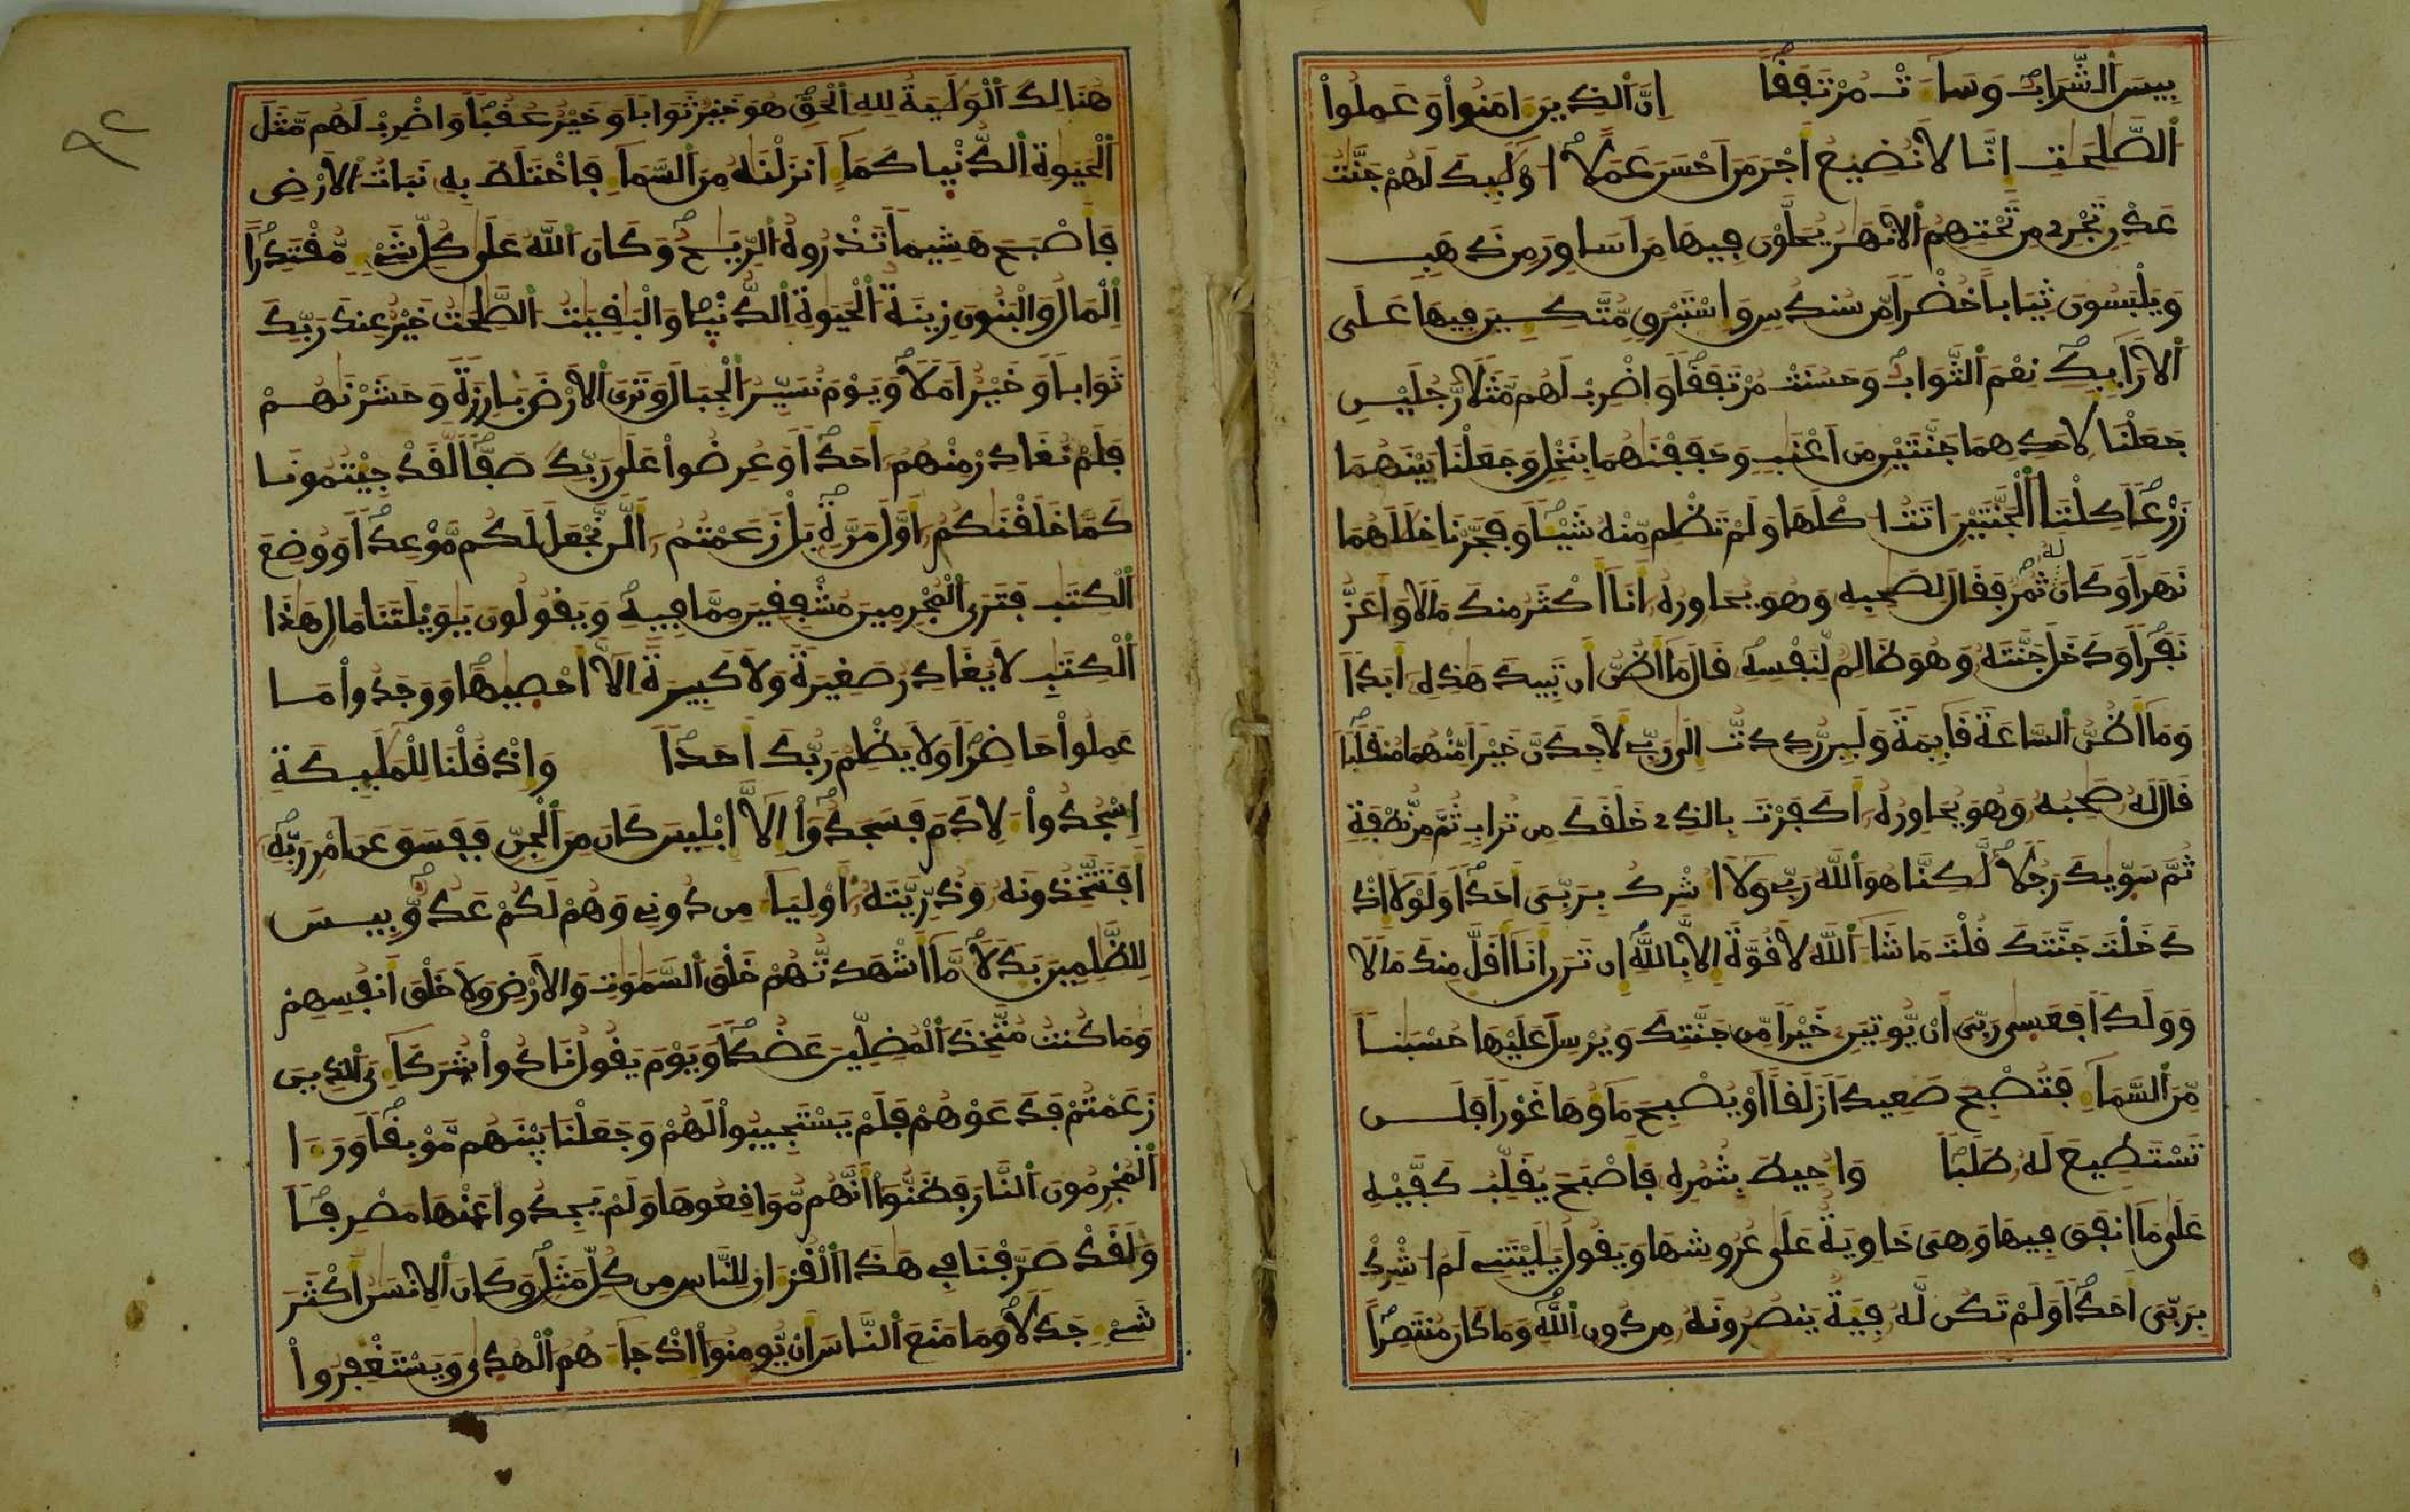 بِيسَ اَ۬لشَّرَابُ وَسَآءَتْ مُرْتَفَقاً اِنَّ اَ۬لذِينَ ءَامَنُواْ وَعَمِلُواْ
اُ۬لصَّٰلِحَٰتِ إِنَّا لَا نُضِيعُ أَجْرَ مَنَ اَحْسَنَ عَمَلاً ا۟وْلَٰٓئِكَ لَهُمْ جَنَّٰتُ
عَدْنٖ تَجْرِے مِن تَحْتِهِمُ اُ۬لَانْهَٰرُ يُحَلَّوْنَ فِيهَا مِنَ اَسَاوِرَ مِن ذَهَبٖ
وَيَلْبَسُونَ ثِيَاباً خُضْراً مِّن سُندُسٖ وَإِسْتَبْرَقٖ مُّتَّكِـِٕينَ فِيهَا عَلَى
اَ۬لَارَآئِكِ نِعْمَ اَ۬لثَّوَابُ وَحَسُنَتْ مُرْتَفَقاً وَاضْرِبْ لَهُم مَّثَلاً رَّجُلَيْنِ
جَعَلْنَا لِأَحَدِهِمَا جَنَّتَيْنِ مِنَ اَعْنَٰبٖ وَحَفَفْنَٰهُمَا بِنَخْلٖ وَجَعَلْنَا بَيْنَهُمَا
زَرْعاً كِلْتَا اَ۬لْجَنَّتَيْنِ ءَاتَتُ ا۟كْلَهَا وَلَمْ تَظْلِم مِّنْهُ شَيْـٔاً وَفَجَّرْنَا خِلَٰلَهُمَا
نَهَراً وَكَانَ لَهُۥ ثُمُرٌ فَقَالَ لِصَٰحِبِهِۦ وَهُوَ يُحَاوِرُهُۥٓ أَنَآ أَكْثَرُ مِنكَ مَالاً وَأَعَزُّ
نَفَراً وَدَخَلَ جَنَّتَهُۥ وَهُوَ ظَالِمٌ لِّنَفْسِهِۦ قَالَ مَآ أَظُنُّ أَن تَبِيدَ هَٰذِهِۦٓ أَبَداً
وَمَآ أَظُنُّ اُ۬لسَّاعَةَ قَآئِمَةً وَلَئِن رُّدِدتُّ إِلَىٰ رَبِّے لَأَجِدَنَّ خَيْراً مِّنْهُمَا مُنقَلَباً
قَالَ لَهُۥ صَٰحِبُهُۥ وَهُوَ يُحَاوِرُهُۥٓ أَكَفَرْتَ بِالذِے خَلَقَكَ مِن تُرَابٖ ثُمَّ مِن نُّطْفَةٖ
ثُمَّ سَوّ۪يٰكَ رَجُلاً لَّٰكِنَّا هُوَ اَ۬للَّهُ رَبِّے وَلَآ أُشْرِكُ بِرَبِّيَ أَحَداً وَلَوْلَآ إِذْ
دَخَلْتَ جَنَّتَكَ قُلْتَ مَا شَآءَ اَ۬للَّهُ لَا قُوَّةَ إِلَّا بِاللَّهِ إِن تَرَنِ أَنَآ أَقَلَّ مِنكَ مَالاً
وَوَلَداً فَعَس۪ىٰ رَبِّيَ أَنْ يُّوتِيَنِۦ خَيْراً مِّن جَنَّتِكَ وَيُرْسِلَ عَلَيْهَا حُسْبَٰناً
مِّنَ اَ۬لسَّمَآءِ فَتُصْبِحَ صَعِيداً زَلَقاً اَوْ يُصْبِحَ مَآؤُهَا غَوْراً فَلَن
تَسْتَطِيعَ لَهُۥ طَلَباً وَأُحِيطَ بِثُمُرِهِۦ فَأَصْبَحَ يُقَلِّبُ كَفَّيْهِ
عَلَىٰ مَآ أَنفَقَ فِيهَا وَهِيَ خَاوِيَةٌ عَلَىٰ عُرُوشِهَا وَيَقُولُ يَٰلَيْتَنِے لَمُ ا۟شْرِكْ
بِرَبِّيَ أَحَداً وَلَمْ تَكُن لَّهُۥ فِئَةٌ يَنصُرُونَهُۥ مِن دُونِ اِ۬للَّهِ وَمَا كَانَ مُنتَصِراً
٩٢
هُنَالِكَ اَ۬لْوَلَٰيَةُ لِلهِ اِ۬لْحَقِّ هُوَ خَيْرٌ ثَوَاباً وَخَيْرٌ عُقُباً وَاضْرِبْ لَهُم مَّثَلَ
اَ۬لْحَيَوٰةِ اِ۬لدُّنْي۪ا كَمَآءٍ اَنزَلْنَٰهُ مِنَ اَ۬لسَّمَآءِ فَاخْتَلَطَ بِهِۦ نَبَاتُ اُ۬لَارْضِ
فَأَصْبَحَ هَشِيماً تَذْرُوهُ اُ۬لرِّيَٰحُ وَكَانَ اَ۬للَّهُ عَلَىٰ كُلِّ شَےْءٖ مُّقْتَدِراً
اِ۬لْمَالُ وَالْبَنُونَ زِينَةُ اُ۬لْحَيَوٰةِ اِ۬لدُّنْي۪ا وَالْبَٰقِيَٰتُ اُ۬لصَّٰلِحَٰتُ خَيْرٌ عِندَ رَبِّكَ
ثَوَاباً وَخَيْرٌ اَمَلاً وَيَوْمَ نُسَيِّرُ اُ۬لْجِبَالَ وَتَرَى اَ۬لَارْضَ بَارِزَةً وَحَشَرْنَٰهُمْ
فَلَمْ نُغَادِرْ مِنْهُمُۥٓ أَحَداً وَعُرِضُواْ عَلَىٰ رَبِّكَ صَفّاً لَّقَدْ جِيْتُمُونَا
كَمَا خَلَقْنَٰكُمُۥٓ أَوَّلَ مَرَّةِۢ بَلْ زَعَمْتُمُۥٓ أَلَّن نَّجْعَلَ لَكُم مَّوْعِداً وَوُضِعَ
اَ۬لْكِتَٰبُ فَتَرَى اَ۬لْمُجْرِمِينَ مُشْفِقِينَ مِمَّا فِيهِ وَيَقُولُونَ يَٰوَيْلَتَنَا مَالِ هَٰذَا
اَ۬لْكِتَٰبِ لَا يُغَادِرُ صَغِيرَةً وَلَا كَبِيرَةً إِلَّآ أَحْص۪يٰهَا وَوَجَدُواْ مَا
عَمِلُواْ حَاضِراً وَلَا يَظْلِمُ رَبُّكَ أَحَداً وَإِذْ قُلْنَا لِلْمَلَٰٓئِكَةِ
اِ۟سْجُدُواْ ءلِادَمَ فَسَجَدُوٓاْ إِلَّآ إِبْلِيسَ كَانَ مِنَ اَ۬لْجِنِّ فَفَسَقَ عَنَ اَمْرِ رَبِّهِۦٓ
أَفَتَتَّخِذُونَهُۥ وَذُرِّيَّتَهُۥٓ أَوْلِيَآءَ مِن دُونِے وَهُمْ لَكُمْ عَدُوٌّ بِيسَ
لِلظَّٰلِمِينَ بَدَلاً مَّآ أَشْهَدتُّهُمْ خَلْقَ اَ۬لسَّمَٰوَٰتِ وَالَارْضِ وَلَا خَلْقَ أَنفُسِهِمْ
وَمَا كُنتُ مُتَّخِذَ اَ۬لْمُضِلِّينَ عَضُداً وَيَوْمَ يَقُولُ نَادُواْ شُرَكَآءِيَ اَ۬لذِينَ
زَعَمْتُمْ فَدَعَوْهُمْ فَلَمْ يَسْتَجِيبُواْ لَهُمْ وَجَعَلْنَا بَيْنَهُم مَّوْبِقاً وَرَءَا
اَ۬لْمُجْرِمُونَ اَ۬لنَّارَ فَظَنُّوٓاْ أَنَّهُم مُّوَاقِعُوهَا وَلَمْ يَجِدُواْ عَنْهَا مَصْرِفاً
وَلَقَدْ صَرَّفْنَا فِے هَٰذَا اَ۬لْقُرْءَانِ لِلنَّاسِ مِن كُلِّ مَثَلٖ وَكَانَ اَ۬لِانسَٰنُ أَكْثَرَ
شَےْءٖ جَدَلاً وَمَا مَنَعَ اَ۬لنَّاسَ أَنْ يُّومِنُوٓاْ إِذْ جَآءَهُمُ اُ۬لْهُد۪ىٰ وَيَسْتَغْفِرُواْ